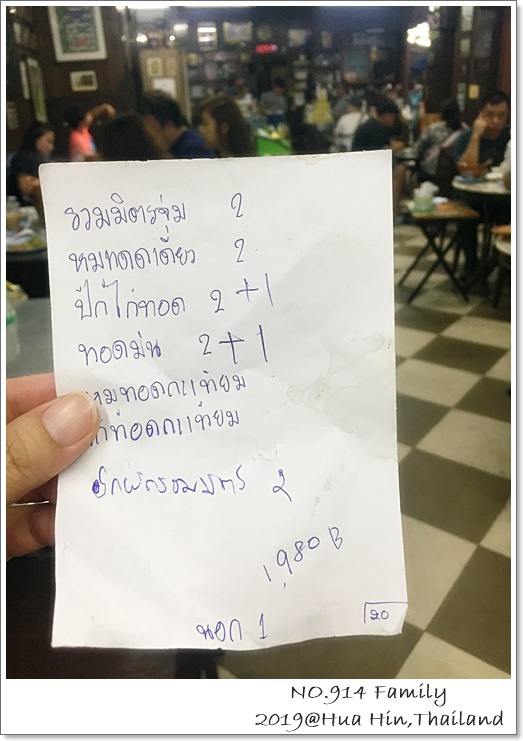 รวมมิตรจุ่ม 2
หมูแดดเดียว 2
ปีกไก่ทอด 2 +1
ทอดมัน 2 +1
หมูทอดกระเทียม
ทอดกระเทียม
2
1,980 B
นอก 1
20
NO.914 Family
2019@Hua Hin,Thailand